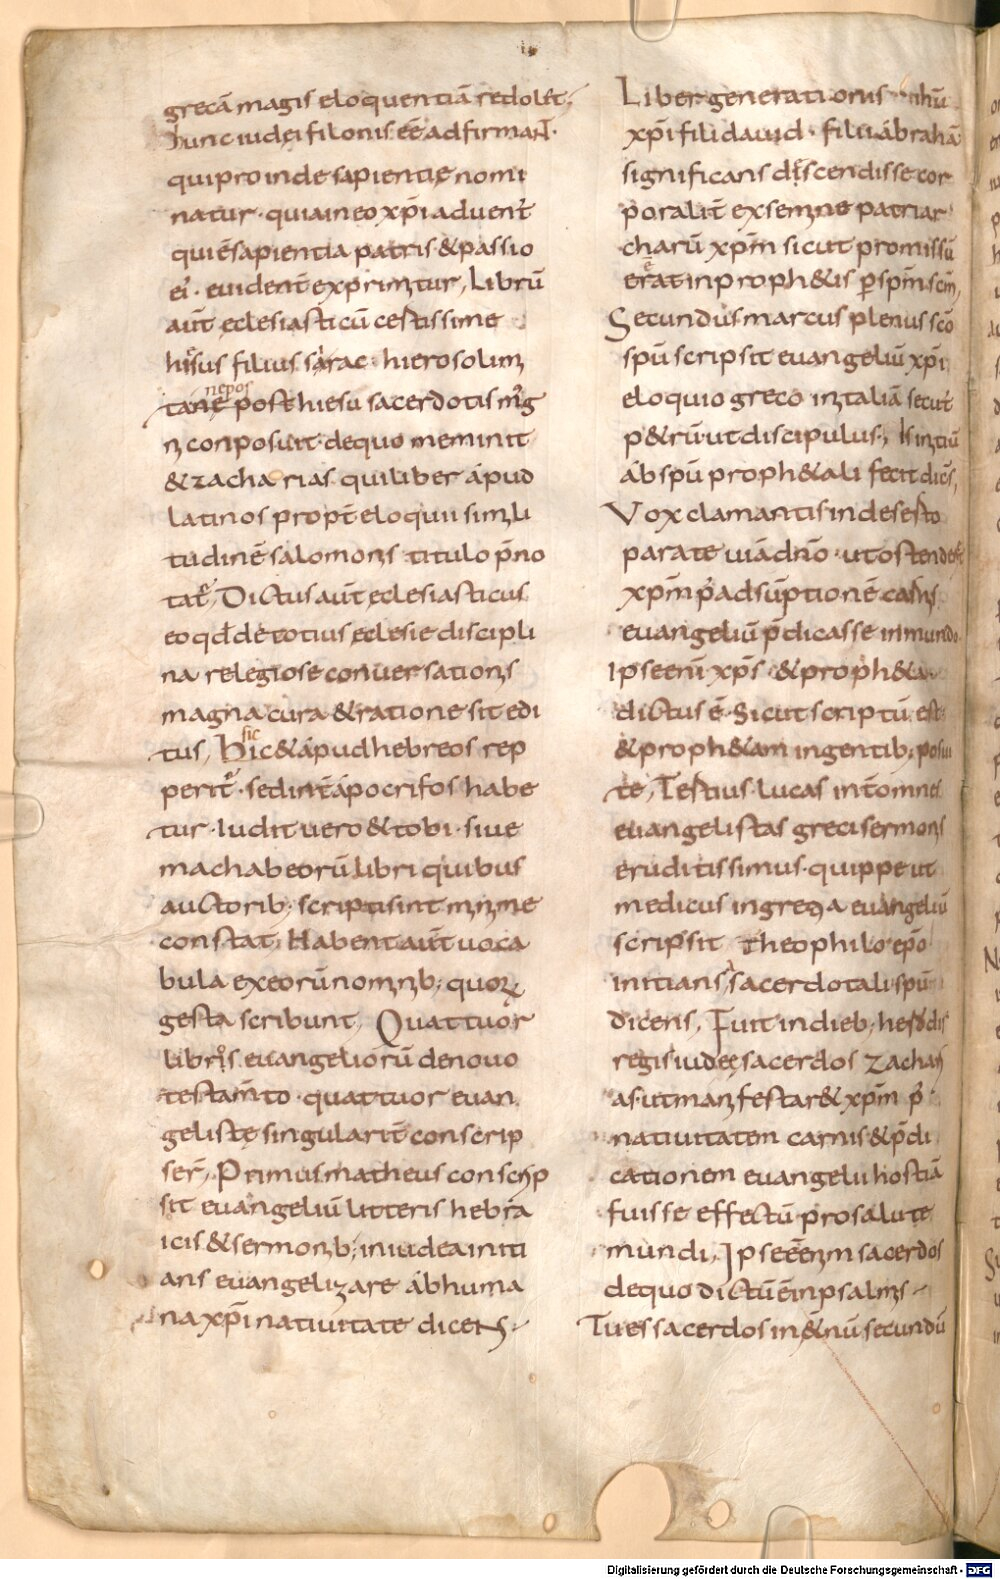 grecā magis eloquentiā redolet;
hunc iudęi filonis eē adfirmant.
qui proinde sapientię nomi
natur. quia in eo xp̄i aduent̄
qui ē sapientia patris & passio
ei'. euident̄ exprimitur, Librū
aūt ęclesiasticū certissime
hiesus filius sirac. hierosolimi
tanę nepos post hiesu sacerdotis mag
ni conposuit. de quo meminit
& zacharias. qui liber ápud
latinos propt̄ eloquii simili
tudinē salomonis titulo p̄no
tatr̄, Dictus aūt ęclesiasticus
eo qđ de totius ęclesie discipli
na relegiose conuersationis
magna cura & ratione sit edi
tus, Hic sic & ápud hebreos rep
perit̄. sed int̄ ápocrifos habe
tur. Iudit uero & tobi. siue
machabeorū libri quibus
auctorib; scripti sint minime
constat, Habent aūt uoca
bula ex eorū nominib; quorꝝ
gesta scribunt, Quattuor
libros euangeliorū de nouo
testam̄to. quattuor euan
gelistę singularit̄ conscrip
ser̄, Primus matheus conscrip
sit euangeliū litteris hebra
icis & sermonib; in iudea initi
ans euangelizare ábhuma
na xp̄i natiuitate dicens.
Liber generationis ihū
xp̄i fili dauid. filii ábrahā
significans discendisse cor
poralit̄ ex semine patriar
charū xp̄m sicut promissū
erat in proph&is p̄ sp̄m scm̄,
Secundus marcus plenus scō
sp̄u scripsit euangeliū xp̄i
eloquio greco in italiā secut'
p&rū ut discipulus, Is initiū
áb sp̄u proph&ali fecit dicēs,
Vox clamantis in deserto
parate uiā dn̄o. ut ostender&
xp̄m p' adsūptionē carnis
euangeliū p̄dicasse in mundo.
Ipse enī xp̄s & proph&a
dictus ē. Sicut scriptū est
& proph&am in gentib; posui
te, Tertius. Lucas int̄ omnes
euangelistas greci sermonis
eruditissimus. quippe ut
medicus in grecia euangeliū
scripsit Theophilo ep̄o
initians á sacerdotali sp̄u
dicens, Fuit in dieb; herodis
regis iudęę sacerdos Zachari
as. ut manifestar& xp̄m p'
natiuitatem carnis & p̄di
cationem euangelii hostiā
fuisse effectū pro salute
mundi, Ipse est enim sacerdos
de quo dictū ē in psalmis.
Tu es sacerdos in &ernū secundū
Digitalisierung gefördert durch die Deutsche Forschungsgemeinschaft - DFG